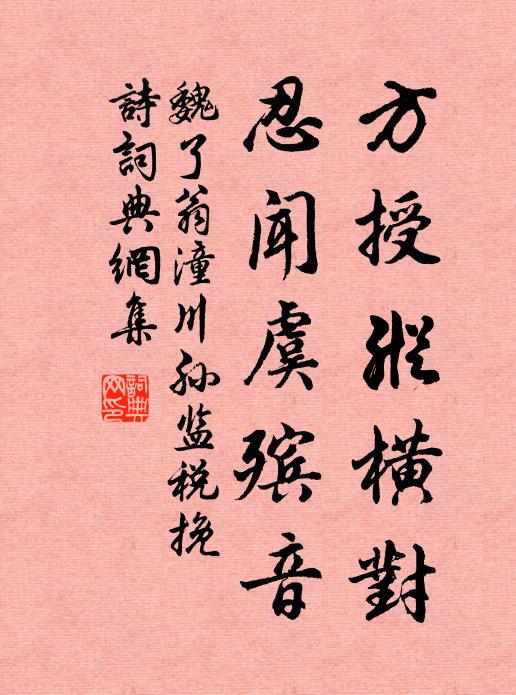 方授縱橫對
忍聞虞殯音
魏了翁潼川孙监税挽
詩詞典網集
詞典网印